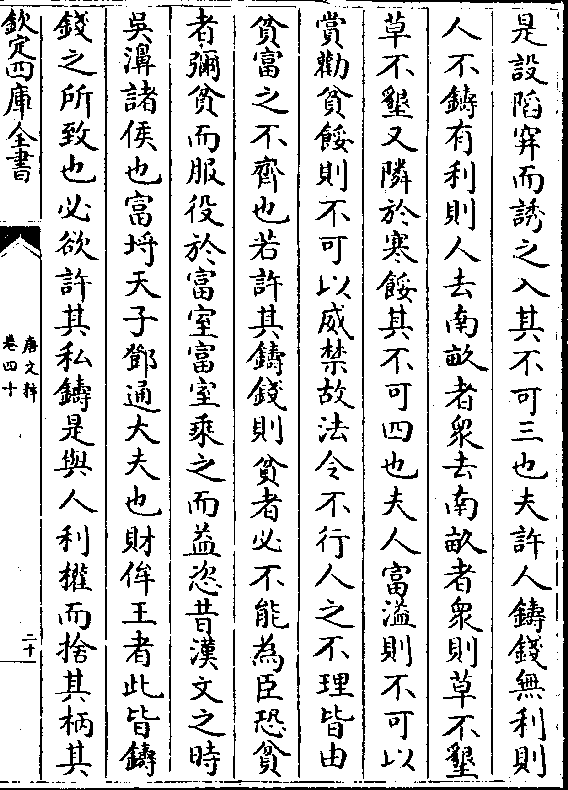 是設陷穽而誘之入其不可三也夫許人鑄錢無利則
人不鑄有利則人去南畝者衆去南畝者衆則草不墾
草不墾又隣於寒餒其不可四也夫人富溢則不可以
賞勸貧餒則不可以威禁故法令不行人之不理皆由
貧富之不齊也若許其鑄錢則貧者必不能為臣恐貧
者彌貧而服役於富室富室乘之而益恣昔漢文之時
吳濞諸侯也富埒天子鄧通大夫也財侔王者此皆鑄
錢之所致也必欲許其私鑄是與人利權而捨其柄其
欽定四庫全書
唐文粹
卷四十
二十